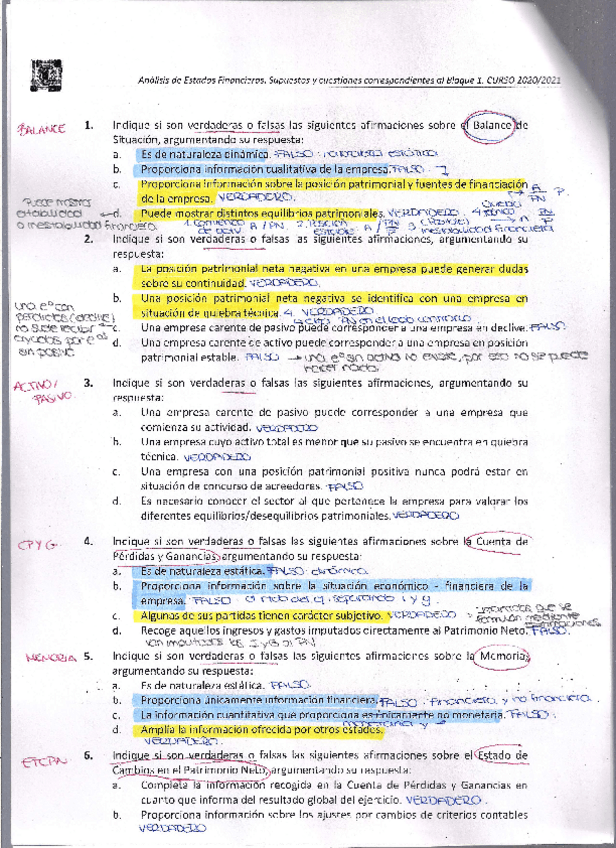 Análisis de Estados Financieros. Supuestos y cuestiones correspondientes al Bloque 1. CURSO 2020/2021
BALANCE 1. Indique si son verdaderas o falsas las siguientes afirmaciones sobre el Balance de
Situación, argumentando su respuesta:
a. Es de naturaleza dinámica. FALSO: naturaleza estática
b. Proporciona información cualitativa de la empresa. FALSO
c. Proporciona información sobre la posición patrimonial y fuentes de financiación
de la empresa. VERDADERO.
Puede mostrar
estabilidad
o inestabilidad financiera
d. Puede mostrar distintos equilibrios patrimoniales. VERDADERO
2. Indique si son verdaderas o falsas las siguientes afirmaciones, argumentando su
respuesta:
a. La posición patrimonial neta negativa en una empresa puede generar dudas
sobre su continuidad. VERDADERO.
b. Una posición patrimonial neta negativa se identifica con una empresa en
situación de quiebra técnica. VERDADERO
c. Una empresa carente de pasivo puede corresponder a una empresa en declive. FALSO
d. Una empresa carente de activo puede corresponder a una empresa en posición
patrimonial estable. FALSO → una eª sin activo no existe, por eso no se puede
hacer nada.
ACTIVO/
PASIVO
3. Indique si son verdaderas o falsas las siguientes afirmaciones, argumentando su
respuesta:
a. Una empresa carente de pasivo puede corresponder a una empresa que
comienza su actividad. VERDADERO
b. Una empresa cuyo activo total es menor que su pasivo se encuentra en quiebra
técnica. VERDADERO
c. Una empresa con una posición patrimonial positiva nunca podrá estar en
situación de concurso de acreedores. FALSO
d. Es necesario conocer el sector al que pertenece la empresa para valorar los
diferentes equilibrios/desequilibrios patrimoniales. VERDADERO
CPYG 4. Indique si son verdaderas o falsas las siguientes afirmaciones sobre la Cuenta de
Pérdidas y Ganancias, argumentando su respuesta:
a. Es de naturaleza estática. FALSO: dinámica
b. Proporciona información sobre la situación económico - financiera de la
empresa. FALSO
c. Algunas de sus partidas tienen carácter subjetivo. VERDADERO
d. Recoge aquellos ingresos y gastos imputados directamente al Patrimonio Neto. FALSO.
MEMORIA 5. Indique si son verdaderas o falsas las siguientes afirmaciones sobre la Memoria,
argumentando su respuesta:
a. Es de naturaleza estática. FALSO
b. Proporciona únicamente información financiera. FALSO: financiera y no financiera.
c. La información cuantitativa que proporciona es únicamente no monetaria. FALSO
d. Amplía la información ofrecida por otros estados.
VERDADERO.
ETCPN 6. Indique si son verdaderas o falsas las siguientes afirmaciones sobre el Estado de
Cambios en el Patrimonio Neto, argumentando su respuesta:
a. Completa la información recogida en la Cuenta de Pérdidas y Ganancias en
cuanto que informa del resultado global del ejercicio. VERDADERO.
b. Proporciona información sobre los ajustes por cambios de criterios contables
VERDADERO